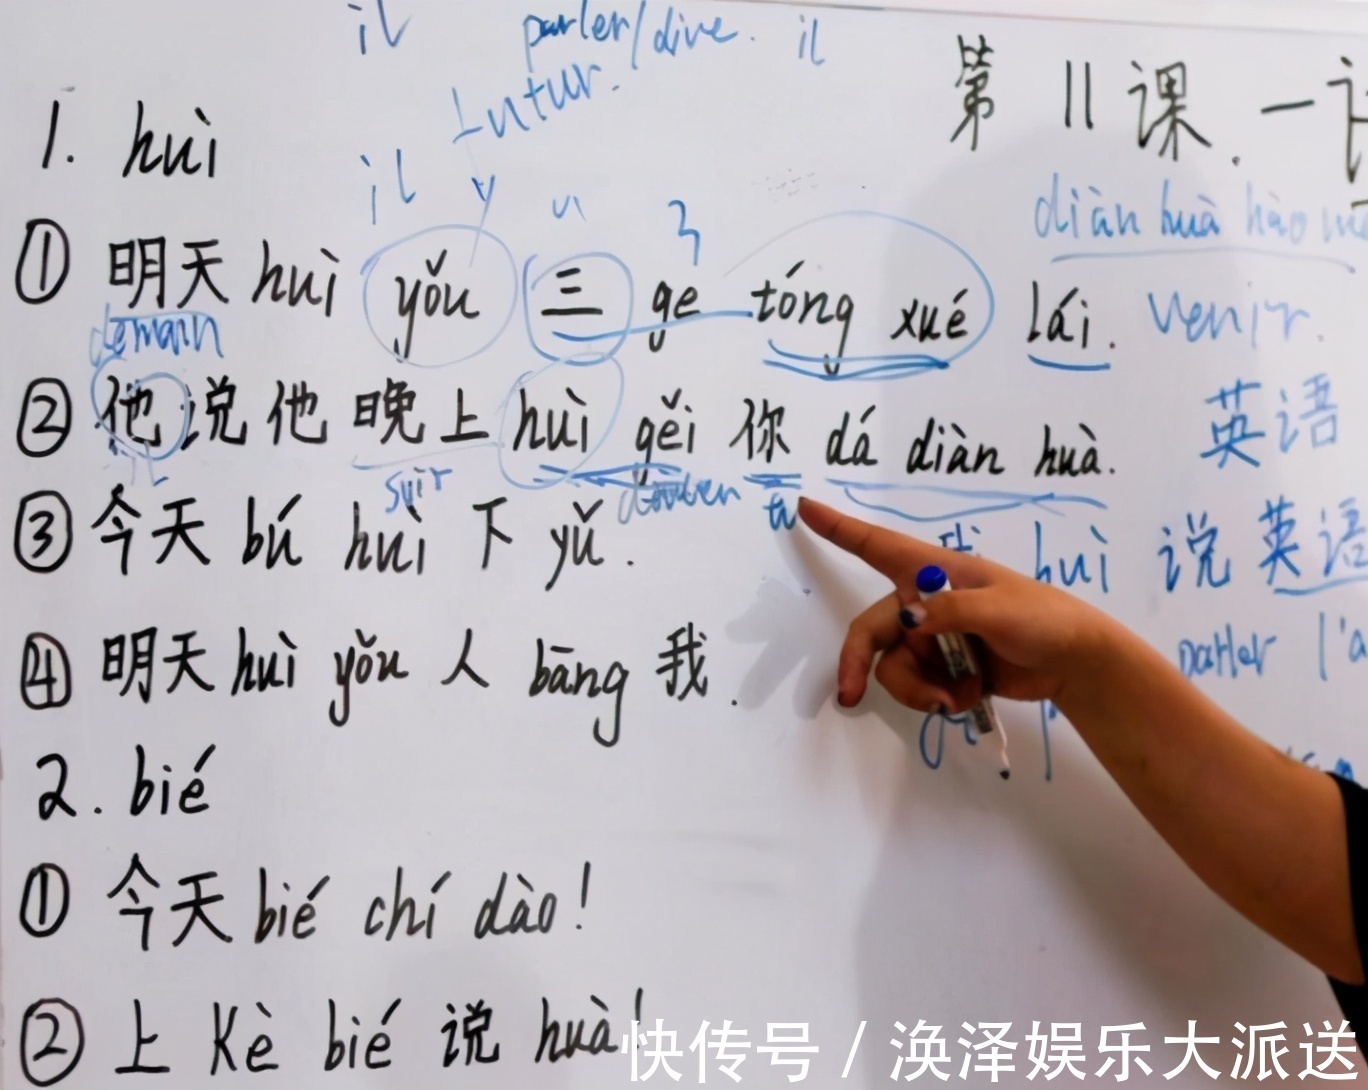 il parler/dire. il
futur.
第11课.一
1. huì
il y a 3
diàn huà hào
① 明天 huì yǒu 三 ge tóng xué lái. venir.
demain
② 他说他晚上 huì gěi 你 dá diàn huà. 英语
soir tu
③ 今天 bú huì 下 yǔ. 我 huì 说英语
parler l'a
④ 明天 huì yǒu 人 bāng 我.
2. bié
① 今天 bié chí dào!
② 上 Kè bié 说 huà!
快传号 / 渙泽娱乐大派送